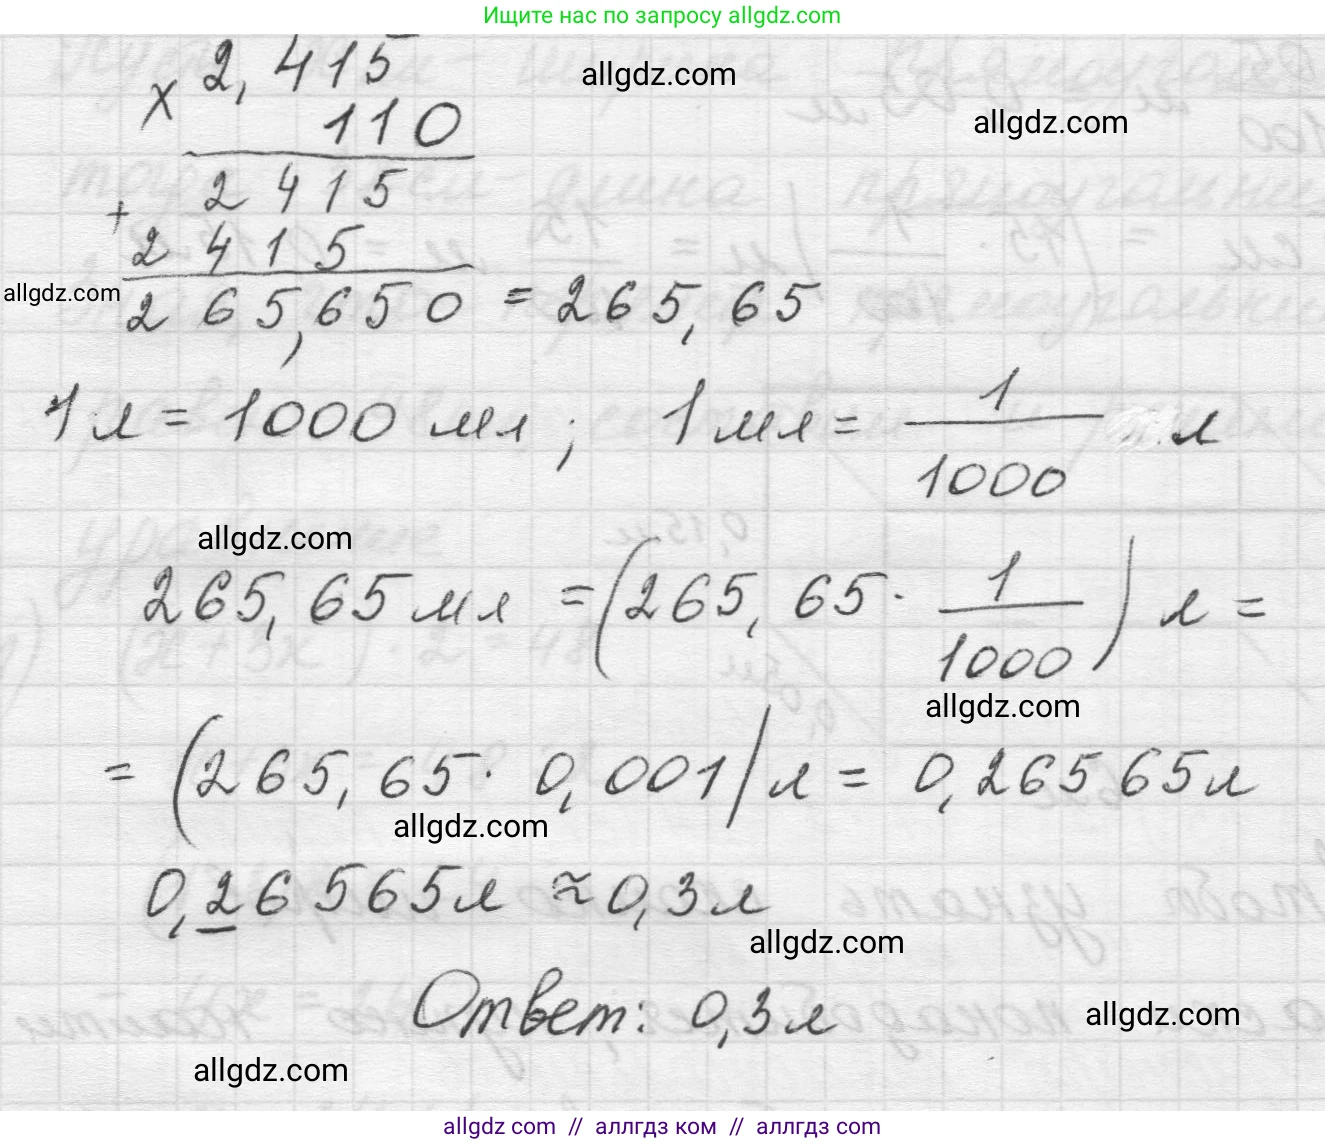 Ищите нас по запросу allgdz.com
× 2,415
allgdz.com
110
allgdz.com
2415
+
2415
allgdz.com
265,650 = 265,65
1 л = 1000 мл; 1 мл = 1/1000 л
allgdz.com
265,65 мл = (265,65 · 1/1000) л =
allgdz.com
= (265,65 · 0,001) л = 0,26565 л
allgdz.com
0,26565 л ≈ 0,3 л
allgdz.com
Ответ: 0,3 л
allgdz.com
allgdz.com
allgdz.com // аллгдз ком // аллгдз com